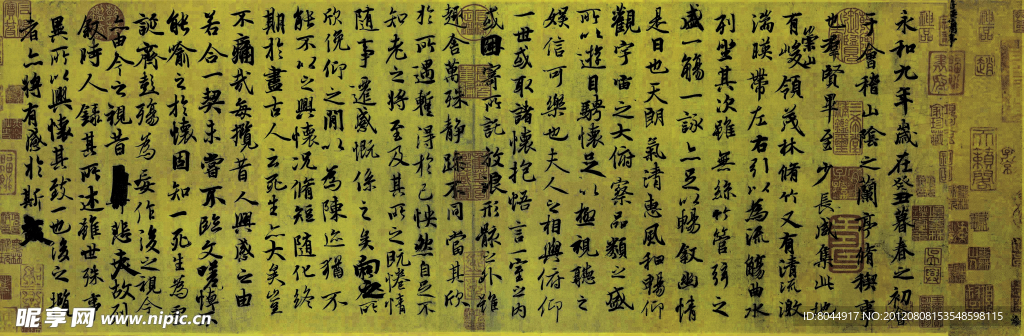 永和九年歲在癸丑暮春之初會
于會稽山陰之蘭亭脩禊事
也羣賢畢至少長咸集此地
有崇山峻領茂林脩竹又有清流激
湍暎帶左右引以為流觴曲水
列坐其次雖無絲竹管弦之
盛一觴一詠亦足以暢敘幽情
是日也天朗氣清惠風和暢仰
觀宇宙之大俯察品類之盛
所以遊目騁懷足以極視聽之
娛信可樂也夫人之相與俯仰
一世或取諸懷抱悟言一室之內
或因寄所託放浪形骸之外雖
趣舍萬殊靜躁不同當其欣
於所遇暫得於己怏然自足不
知老之將至及其所之既惓情
隨事遷感慨係之矣向之所
欣俛仰之閒以為陳迹猶不
能不以之興懷況脩短隨化終
期於盡古人云死生亦大矣豈
不痛哉每攬昔人興感之由
若合一契未嘗不臨文嗟悼不
能喻之於懷固知一死生為虛
誕齊彭殤為妄作後之視今
亦由今之視昔悲夫故列
敘時人錄其所述雖世殊事
異所以興懷其致一也後之攬
者亦將有感於斯
昵享网 www.nipic.cn
ID:8044917 NO:20120808153548598115